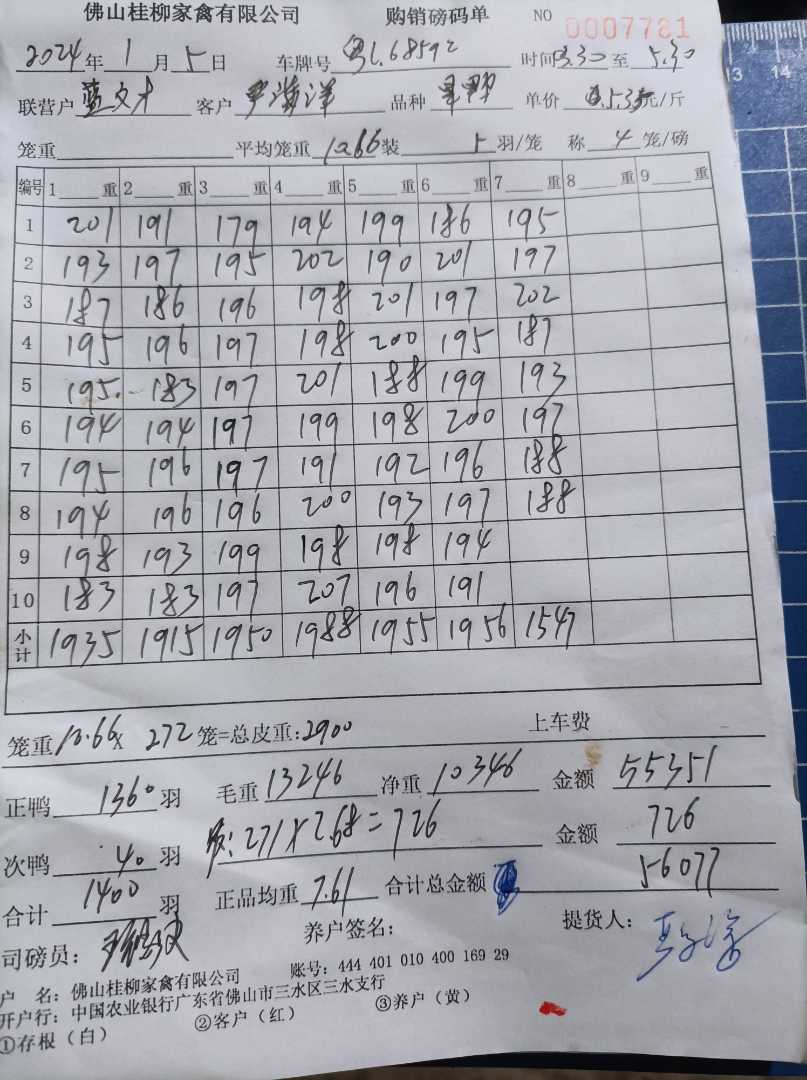 佛山桂柳家禽有限公司 购销磅码单 NO 0007781
2024年1月5日 车牌号 粤L68592 时间 3.30 至 5.30
联营户 蓝文才 客户 尹海洋 品种 单价 5.35元/斤
笼重 平均笼重 1066 装 5 羽/笼 称 4 笼/磅
编号 1 重 2 重 3 重 4 重 5 重 6 重 7 重 8 重 9 重
1 201 191 179 194 199 186 195
2 193 197 195 202 190 201 197
3 187 186 196 198 201 197 202
4 195 196 197 198 200 195 187
5 195 183 197 201 188 199 193
6 194 194 197 199 198 200 197
7 195 196 197 191 192 196 188
8 194 196 196 200 193 197 188
9 198 193 199 198 198 194
10 183 183 197 207 196 191
小计 1935 1915 1950 1988 1955 1956 1547
笼重 10.66 x 272 笼=总皮重: 2900 上车费
正鸭 1360 羽 毛重 13246 净重 10346 金额 55351
271 x 2.68 = 726 金额 726
次鸭 40 羽
合计 1400 羽 正品均重 7.61 合计总金额 56077
司磅员: 养户签名: 提货人:
户 名: 佛山桂柳家禽有限公司 账号: 444 401 010 400 169 29
开户行: 中国农业银行广东省佛山市三水区三水支行
①存根(白) ②客户(红) ③养户(黄)